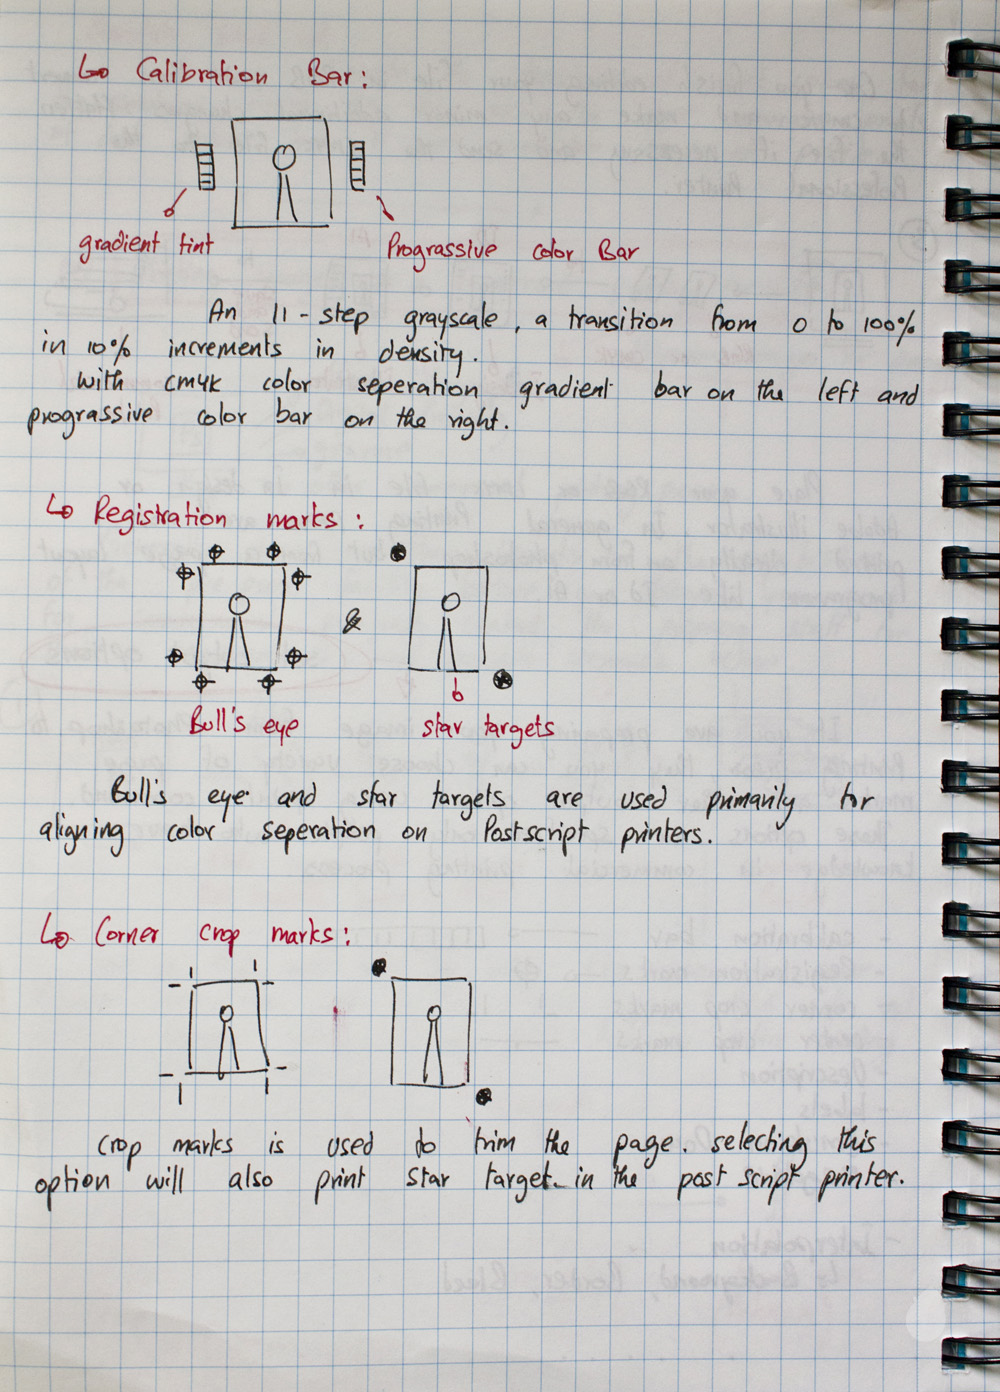 ↳ Calibration Bar:
gradient tint
Prograssive color Bar
An 11-step grayscale, a transition from 0 to 100%
in 10% increments in density.
with CMYK color seperation gradient bar on the left and
prograssive color bar on the right.
↳ Registration marks:
&
Bull's eye
star targets
Bull's eye and star targets are used primarily for
aligning color seperation on Postscript printers.
↳ Corner crop marks:
crop marks is used to trim the page. selecting this
option will also print star target in the post script printer.